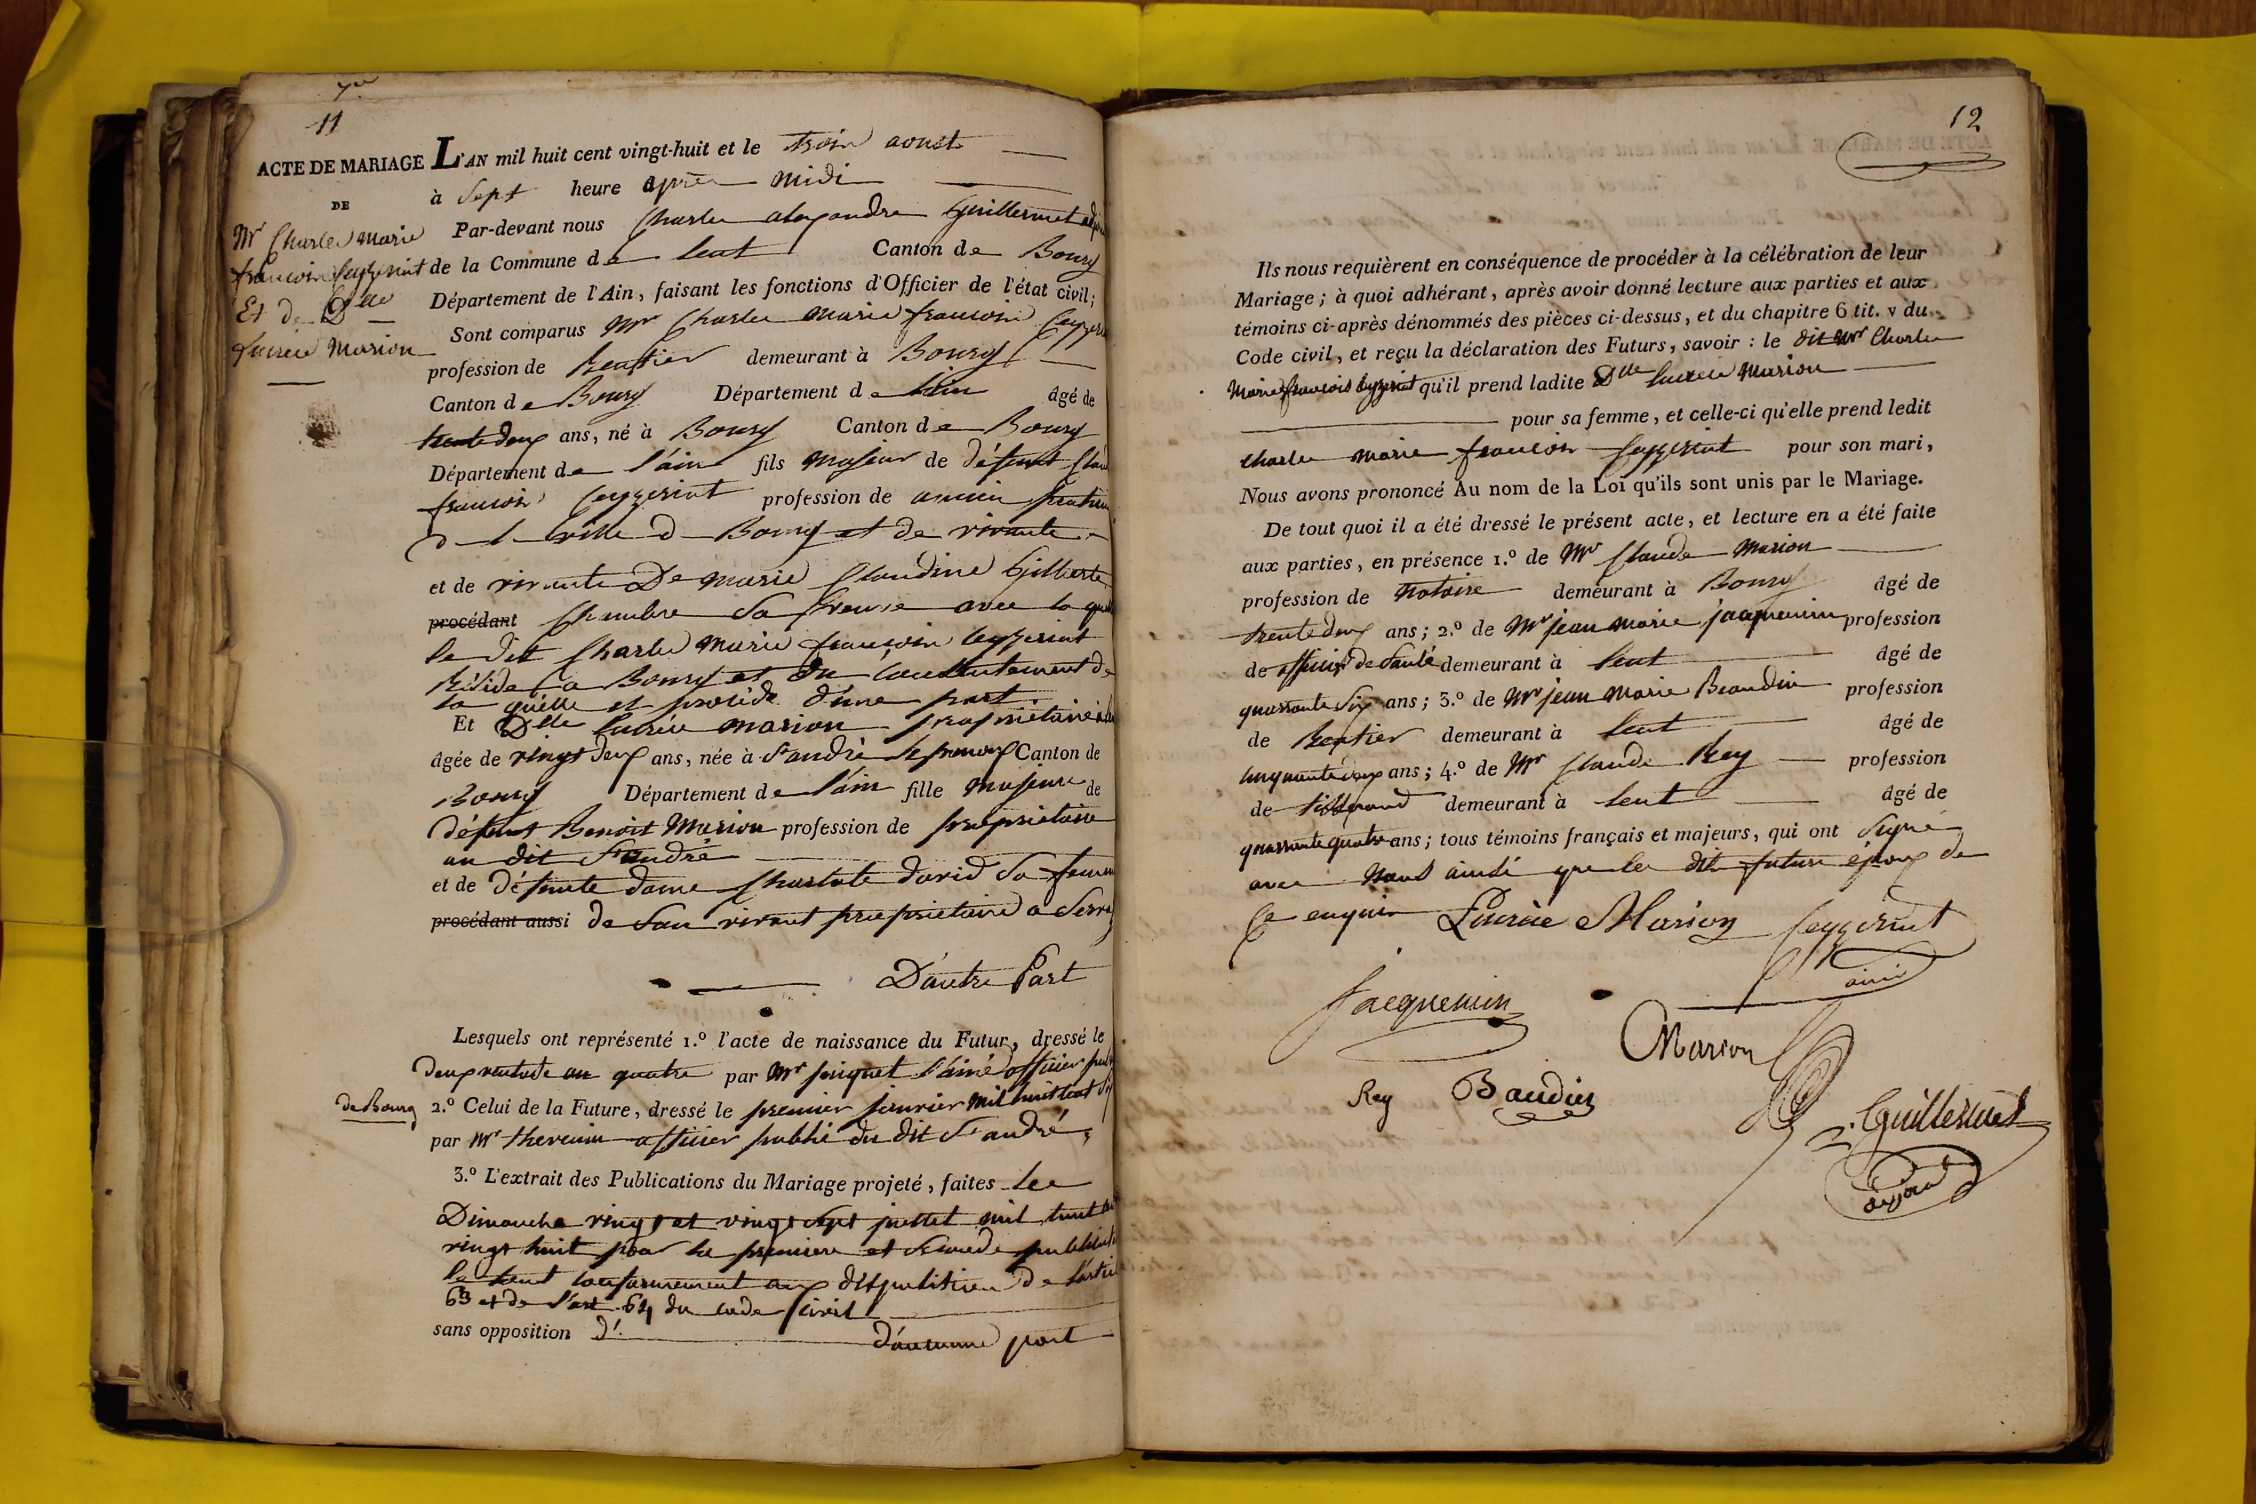 11
ACTE DE MARIAGE
DE
Mr Charles Marie
françois Ceyzeriat
Et de Dlle
Lucrèce Marion
L'AN mil huit cent vingt-huit et le trois aoust
à Sept heure après midi
Par-devant nous Charles alexandre Guillermet adjoint
de la Commune de Lent Canton de Bourg
Département de l'Ain, faisant les fonctions d'Officier de l'état civil;
Sont comparus Mr Charles Marie françois Ceyzeriat
profession de Rentier demeurant à Bourg
Canton de Bourg Département de l'ain âgé de
trente deux ans, né à Bourg Canton de Bourg
Département de l'ain fils majeur de défunt Claude
françois Ceyzeriat profession de ancien
de la ville de Bourg et de vivante
et de vivante De marie Claudine Gilberte
procédant Chambre Sa Veuve avec la quelle
le dit Charles Marie françois Ceyzeriat
Réside a Bourg et du Consentement de
la quelle il procède d'une part
Et Dlle Lucrèce Marion propriétaire
âgée de vingt deux ans, née à St andré le panoux Canton de
Bourg Département de l'ain fille majeure de
défunt Benoit Marion profession de propriétaire
au dit St andré
et de défunte dame Charlote david Sa femme
procédant aussi de Son vivant propriétaire a
D'autre Part
Lesquels ont représenté 1.º l'acte de naissance du Futur, dressé le
deux ventose an quatre par Mr l'ainé officier public
de Bourg
2.º Celui de la Future, dressé le premier janvier mil huit cent six
par Mr thevenin officier public du dit St andré
3.º L'extrait des Publications du Mariage projeté, faites les
Dimanche vingt et vingt Sept juillet mil huit cent
vingt huit pour la premiere et Seconde publication
le tout conformement aux disposition de l'article
63 et de l'art 64 du code Civil
sans opposition d'aucune part
12
Ils nous requièrent en conséquence de procéder à la célébration de leur
Mariage; à quoi adhérant, après avoir donné lecture aux parties et aux
témoins ci-après dénommés des pièces ci-dessus, et du chapitre 6 tit. v du
Code civil, et reçu la déclaration des Futurs, savoir : le dit Mr Charles
Marie françois Ceyzeriat qu'il prend ladite Dlle Lucrèce Marion
pour sa femme, et celle-ci qu'elle prend ledit
Charles marie françois Ceyzeriat pour son mari,
Nous avons prononcé Au nom de la Loi qu'ils sont unis par le Mariage.
De tout quoi il a été dressé le présent acte, et lecture en a été faite
aux parties, en présence 1.º de Mr Claude Marion
profession de Notaire demeurant à Bourg âgé de
trente deux ans; 2.º de Mr jean marie jacquemin profession
de officier de Santé demeurant à Lent âgé de
quarante Six ans; 3.º de Mr jean Marie Beaudin profession
de Rentier demeurant à Lent âgé de
cinquante deux ans; 4.º de Mr Claude Rey profession
de tisserand demeurant à Lent âgé de
quarante quatre ans; tous témoins français et majeurs, qui ont Signé
avec Nous ainsi que les dits futurs époux de
Ce enquis Lucrèce Marion Ceyzeriat
ainé
Jacquemin
Marion
Rey Baudin
Guillermet
adjoint